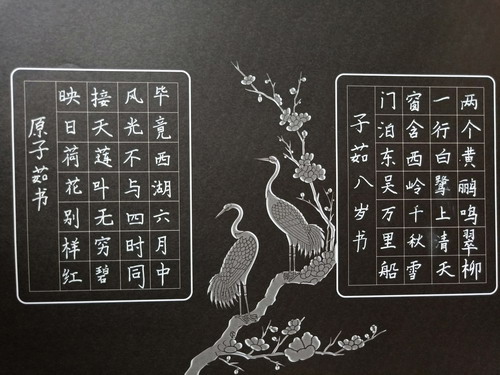 两个黄鹂鸣翠柳
一行白鹭上清天
窗含西岭千秋雪
门泊东吴万里船
子茹八岁书
毕竟西湖六月中
风光不与四时同
接天莲叶无穷碧
映日荷花别样红
原子茹书